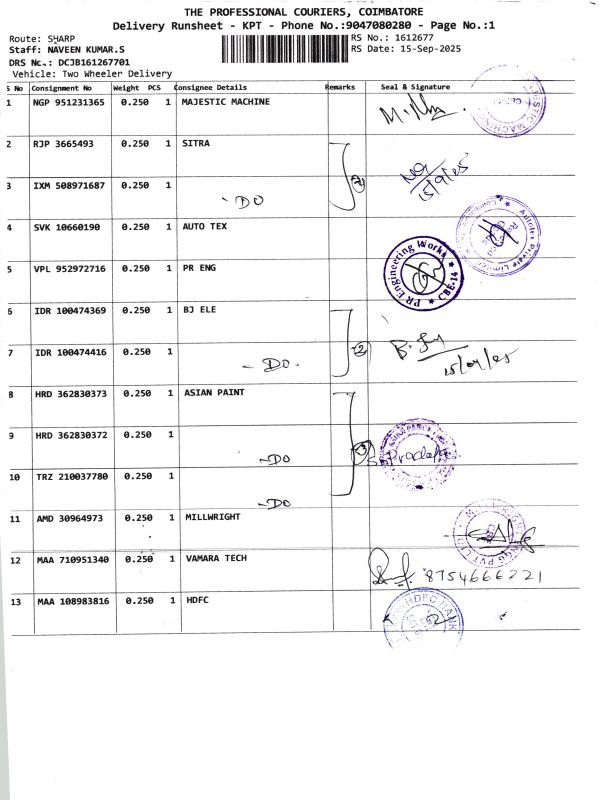 THE PROFESSIONAL COURIERS, COIMBATORE
Delivery Runsheet - KPT - Phone No.:9047080280 - Page No.:1
Route: SHARP
RS No.: 1612677
Staff: NAVEEN KUMAR.S
RS Date: 15-Sep-2025
DRS No.: DCJB161267701
Vehicle: Two Wheeler Delivery
S No Consignment No Weight PCS Consignee Details Remarks Seal & Signature
1 NGP 951231365 0.250 1 MAJESTIC MACHINE
2 RJP 3665493 0.250 1 SITRA
15/9/25
3 IXM 508971687 0.250 1
- DO
2
4 SVK 10660190 0.250 1 AUTO TEX
5 VPL 952972716 0.250 1 PR ENG
PR Engineering Works ★ CBE-14 ★
6 IDR 100474369 0.250 1 BJ ELE
7 IDR 100474416 0.250 1
- DO -
2
15/09/25
8 HRD 362830373 0.250 1 ASIAN PAINT
9 HRD 362830372 0.250 1
- DO
3
10 TRZ 210037780 0.250 1
- DO
11 AMD 30964973 0.250 1 MILLWRIGHT
12 MAA 710951340 0.250 1 VAMARA TECH
8754666221
13 MAA 108983816 0.250 1 HDFC
HDFC BANK